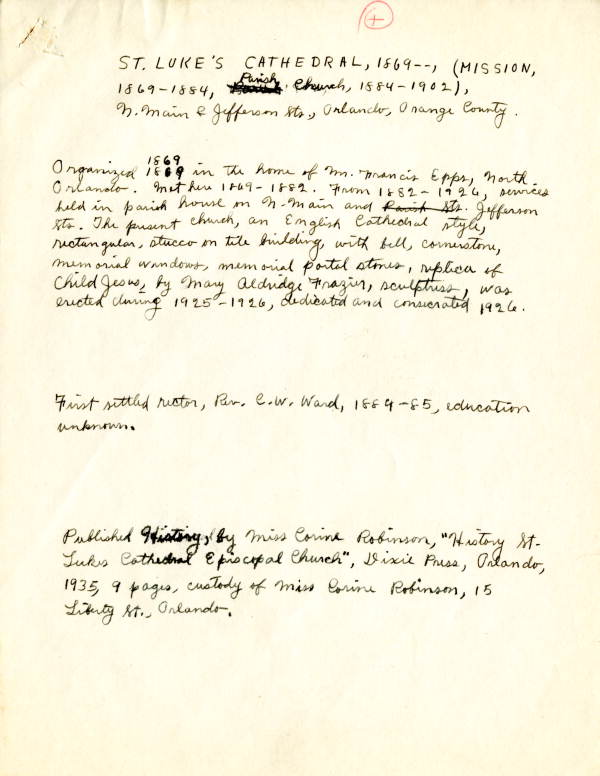 ST. LUKE'S CATHEDRAL, 1869--, (MISSION,
1869-1884, Parish Church, 1884-1902),
N. Main & Jefferson Sts., Orlando, Orange County.
Organized 1869 in the home of Mr. Francis Epps, North
Orlando. Met here 1869-1882. From 1882-1926, services
held in parish house on N. Main and Parish Sts. Jefferson
Sts. The present church, an English Cathedral style,
rectangular, stucco on tile building, with bell, cornerstone,
memorial windows, memorial portal stones, replica of
Child Jesus, by Mary Aldridge Frazier, sculptress, was
erected during 1925-1926, dedicated and consecrated 1926.
First settled rector, Rev. C. W. Ward, 1884-85, education
unknown.
Published History, by Miss Corine Robinson, "History St-
Lukes Cathedral Episcopal Church", Dixie Press, Orlando,
1935, 9 pages, custody of Miss Corine Robinson, 15
Liberty St., Orlando.